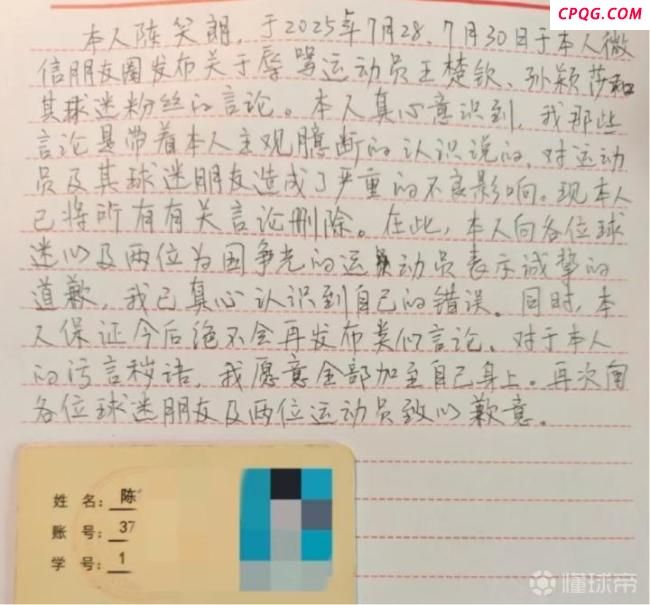 CPQG.COM
本人陈笑朗,于2025年7月28、7月30日于本人微
信朋友圈发布关于辱骂运动员王楚钦、孙颖莎和
其球迷粉丝的言论。本人真心意识到,我那些
言论是带着本人主观臆断的认识说的,对运动
员及其球迷朋友造成了严重的不良影响。现本人
已将所有有关言论删除。在此,本人向各位球
迷以及两位为国争光的运动员表示诚挚的
道歉,我已真心认识到自己的错误。同时,本
人保证今后绝不会再发布类似言论、对于本人
的污言秽语,我愿意全部加至自己身上。再次向
各位球迷朋友及两位运动员致以歉意。
姓 名:陈
账 号:37
学 号:1
懂球帝